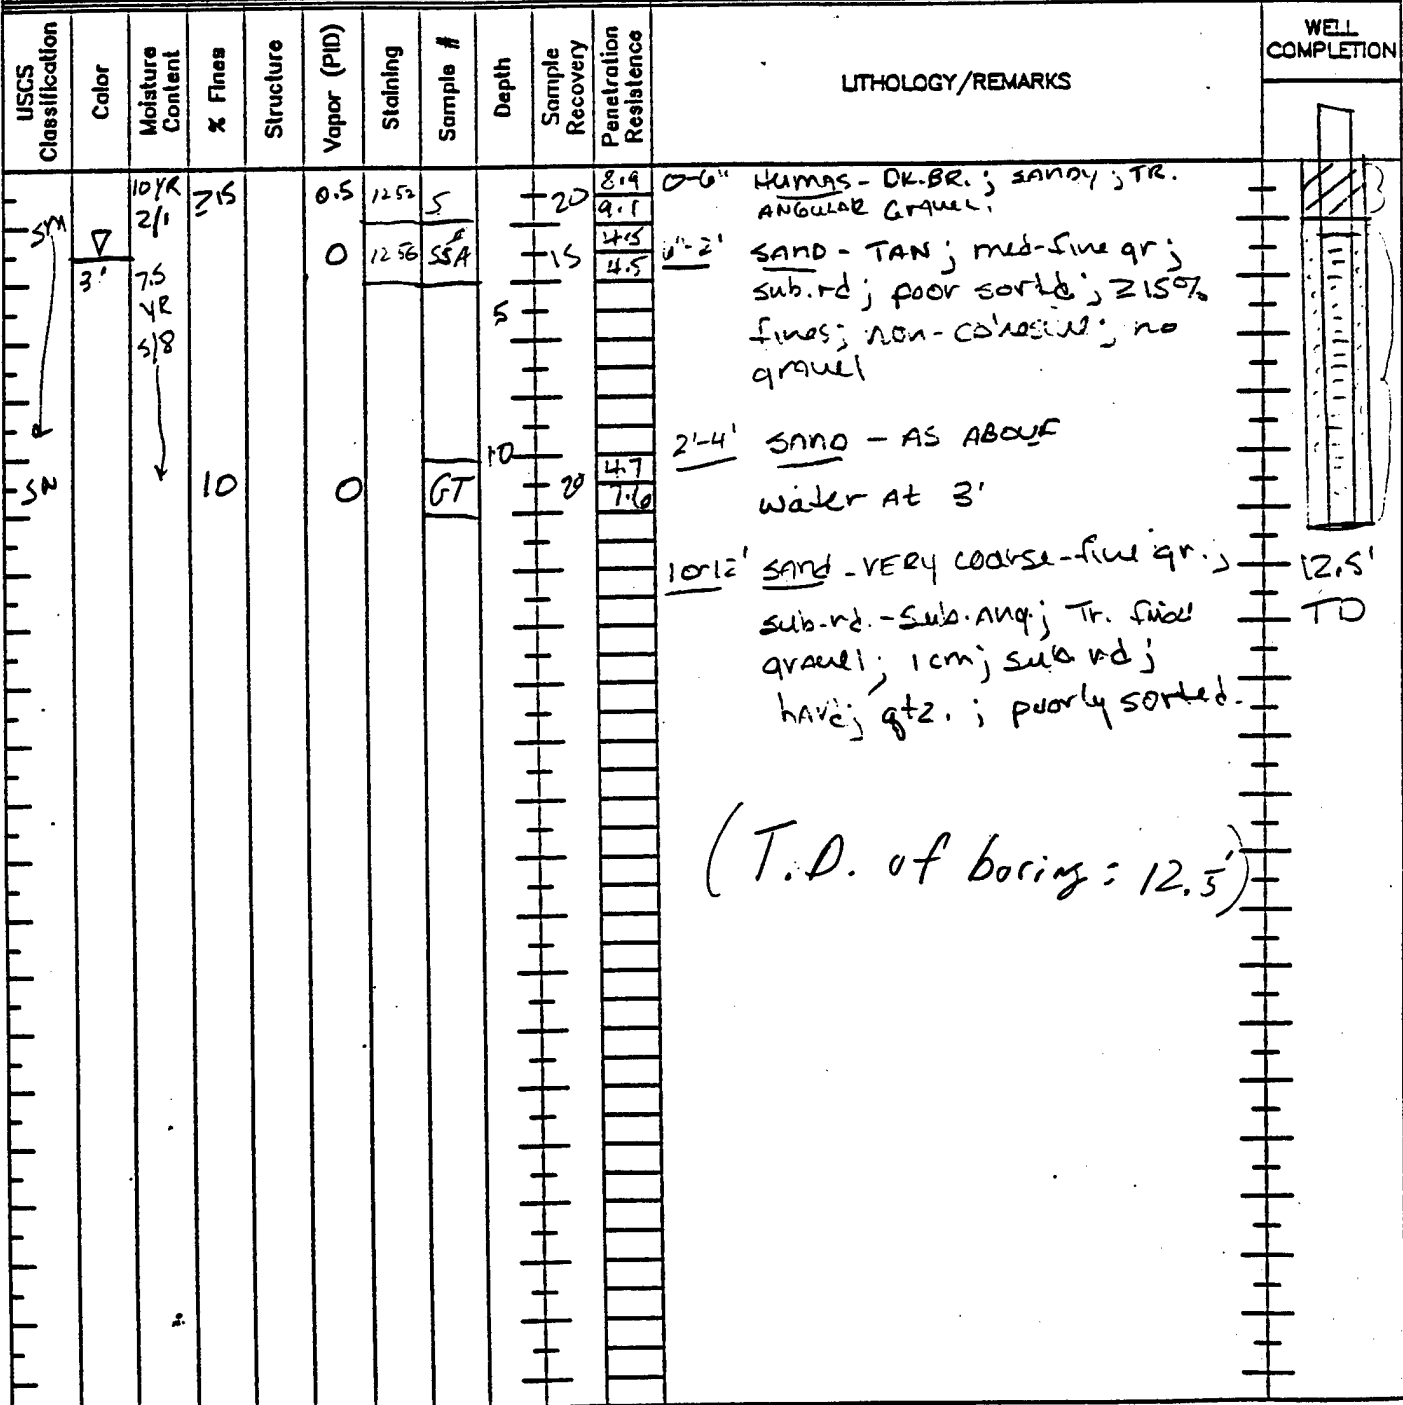 USCS Classification
Color
Moisture Content
% Fines
Structure
Vapor (PID)
Staining
Sample #
Depth
Sample Recovery
Penetration Resistence
LITHOLOGY/REMARKS
WELL COMPLETION
SM
3'
10YR
2/1
7.5
YR
5/8
≥15
0.5
1252
S
20
8.9
9.1
0
1256
SSA
15
4.5
4.5
5
10
10
0
GT
20
4.7
7.6
0-6" HUMAS - DK.BR.; SANDY; TR.
ANGULAR GRAVEL.
6"-2' SAND - TAN; med-fine gr;
sub.rd; poor sortd; ≥15%
fines; non-cohesive; no
gravel
2'-4' SAND - AS ABOVE
water At 3'
10-12' SAND - VERY coarse-fine gr.;
sub.rd.-Sub.Ang; Tr.
gravel; 1cm; sub rd;
qtz.; poorly sorted.
(T.D. of boring = 12.5')
12.5'
TD